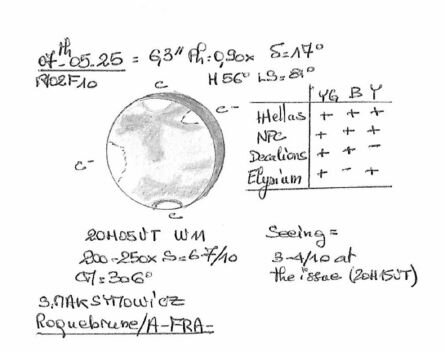 07th-05.25 = 6,3" Ph=0,90x δ=17°
H 56° LS=81°
C
C-
C-
C
YG B Y
Hellas + + +
NPC + + +
Decalions + + -
Elysium + - +
20H05UT WM
200-250x S=6-7/10
CM=306°
Seeing=
3-4/10 at
the issue (20H15UT)
S.MAKSYMOWICZ
Roquebrune/A-FRA-